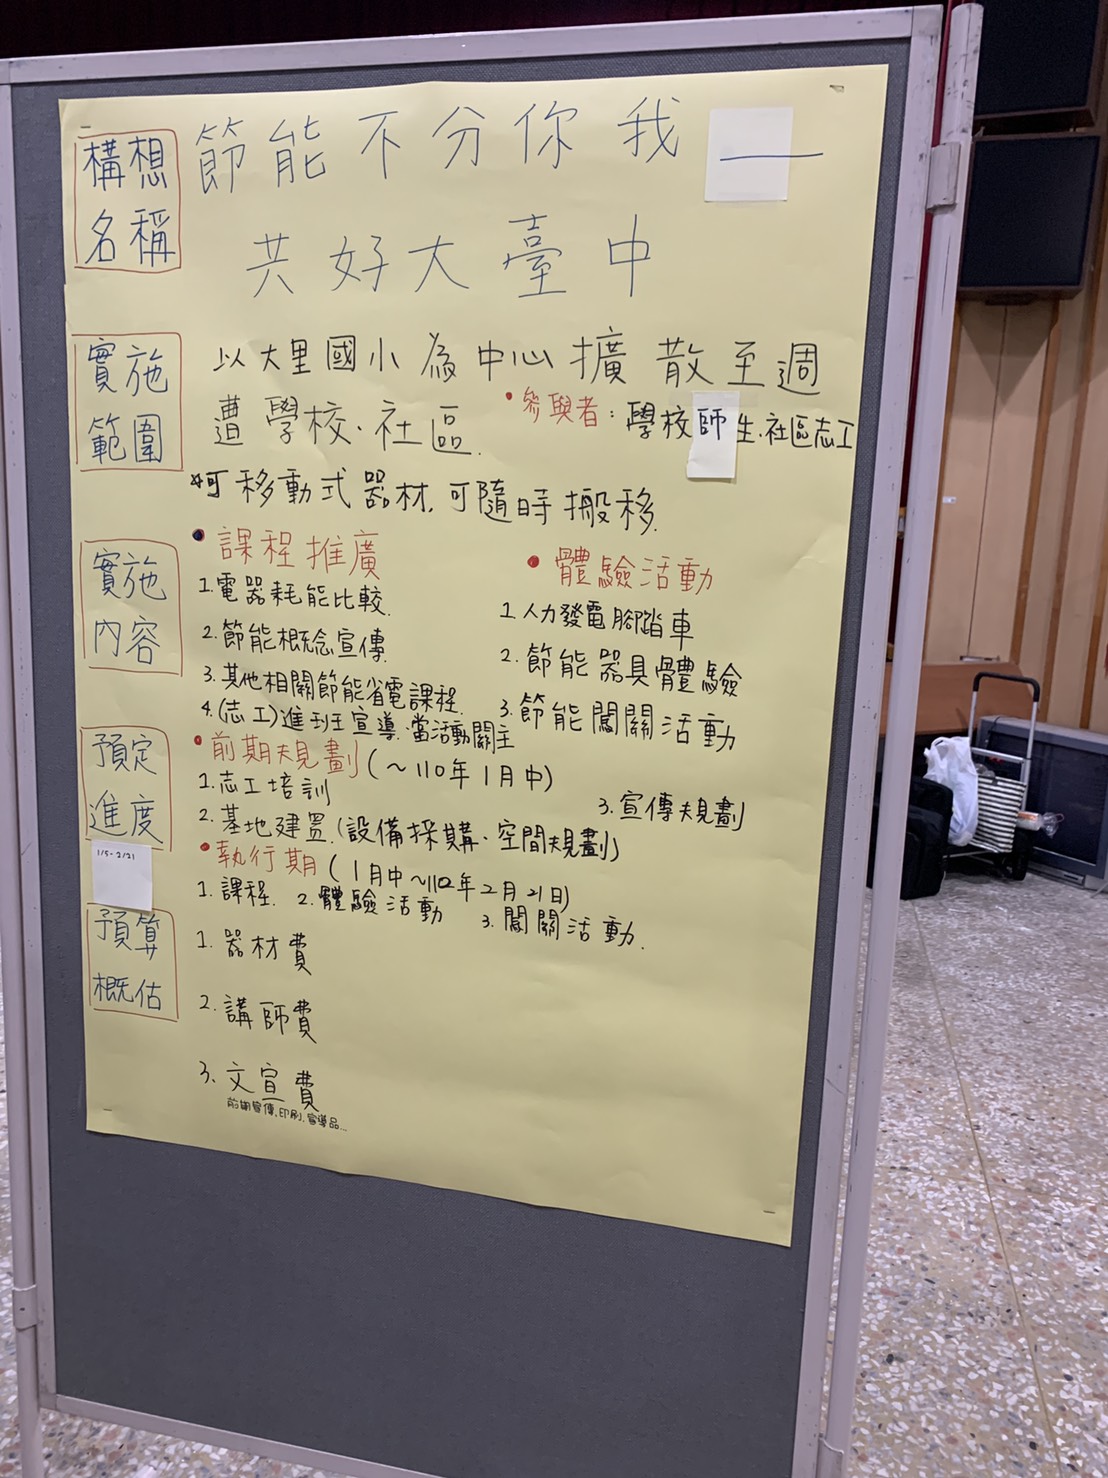 構想名稱
節能不分你我—
共好大臺中
實施範圍
以大里國小為中心擴散至週
遭學校、社區.
•參與者：學校師生、社區志工
*可移動式器材,可隨時搬移.
實施內容
•課程推廣
1.電器耗能比較.
2.節能概念宣傳.
3.其他相關節能省電課程.
4.(志工)進班宣導.當活動關主
•體驗活動
1.人力發電腳踏車
2.節能器具體驗
3.節能闖關活動
預定進度
1/5-2/21
•前期規劃(～110年1月中)
1.志工培訓
2.基地建置.(設備採購、空間規劃)
3.宣傳規劃
•執行期(1月中～110年2月21日)
1.課程. 2.體驗活動 3.闖關活動.
預算概估
1.器材費
2.講師費
3.文宣費
前期宣傳,印刷,宣導品...